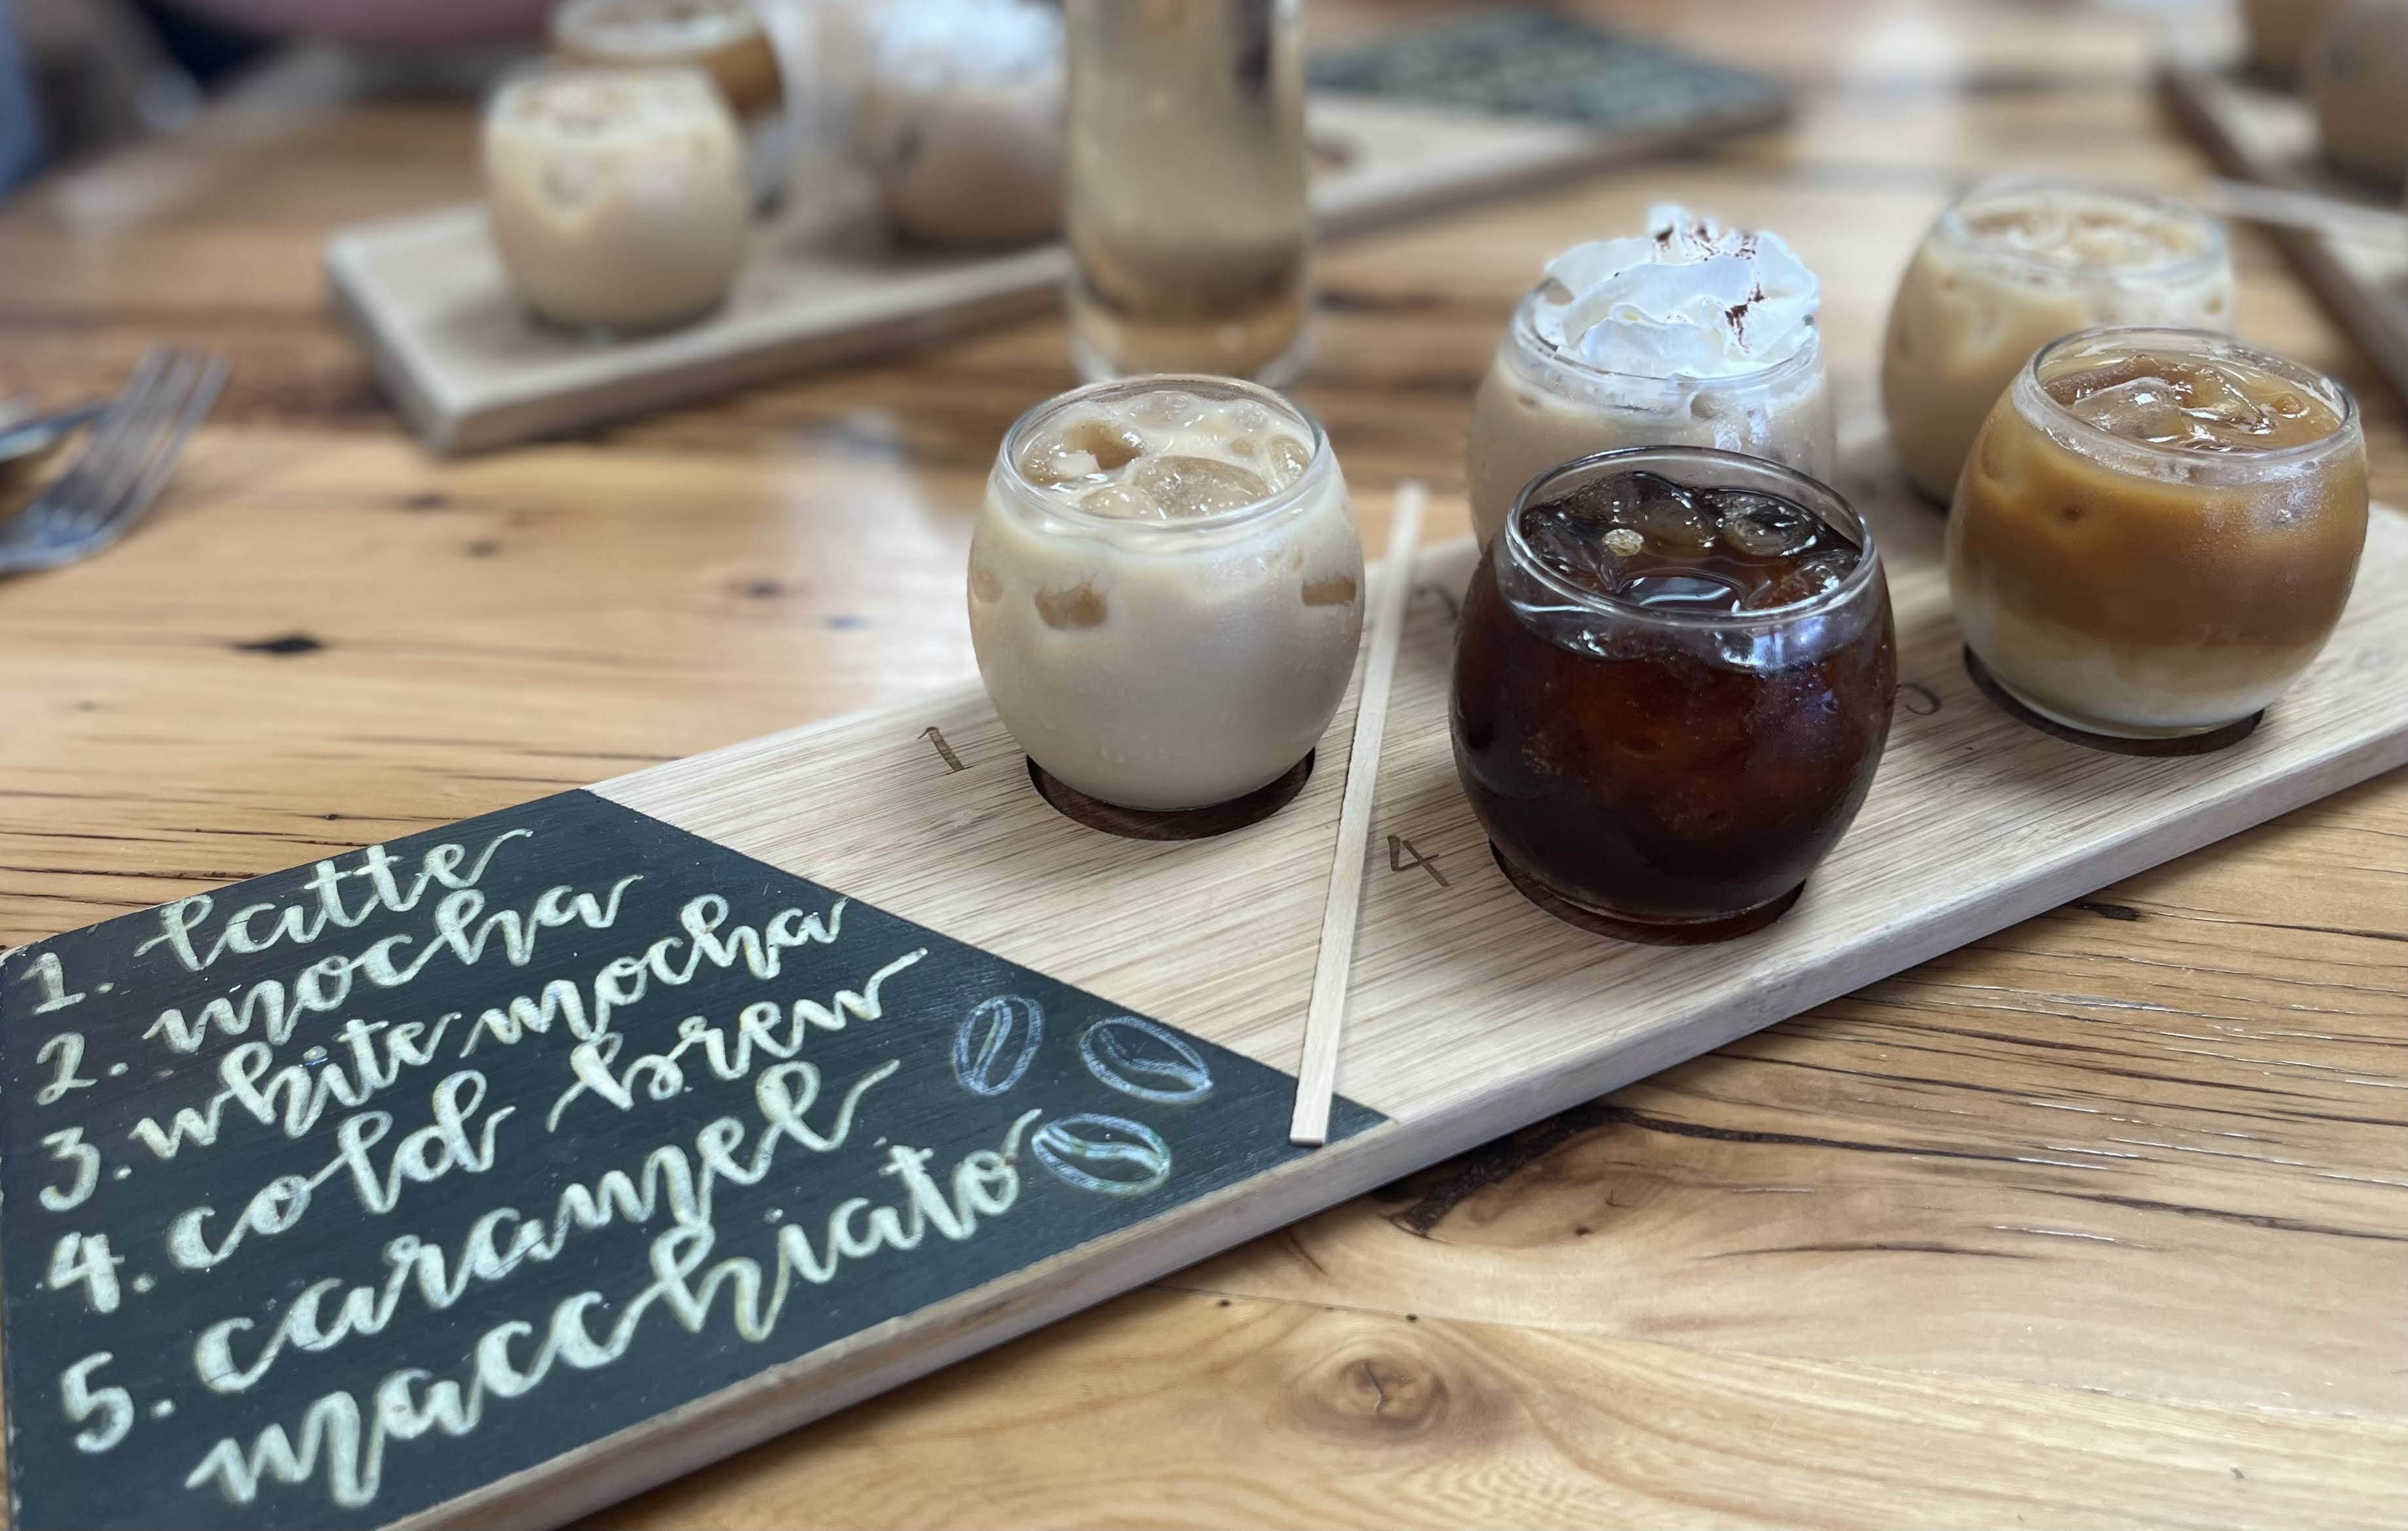 1. latte
2. mocha
3. white mocha
4. cold brew
5. caramel
macchiato
1
4
5